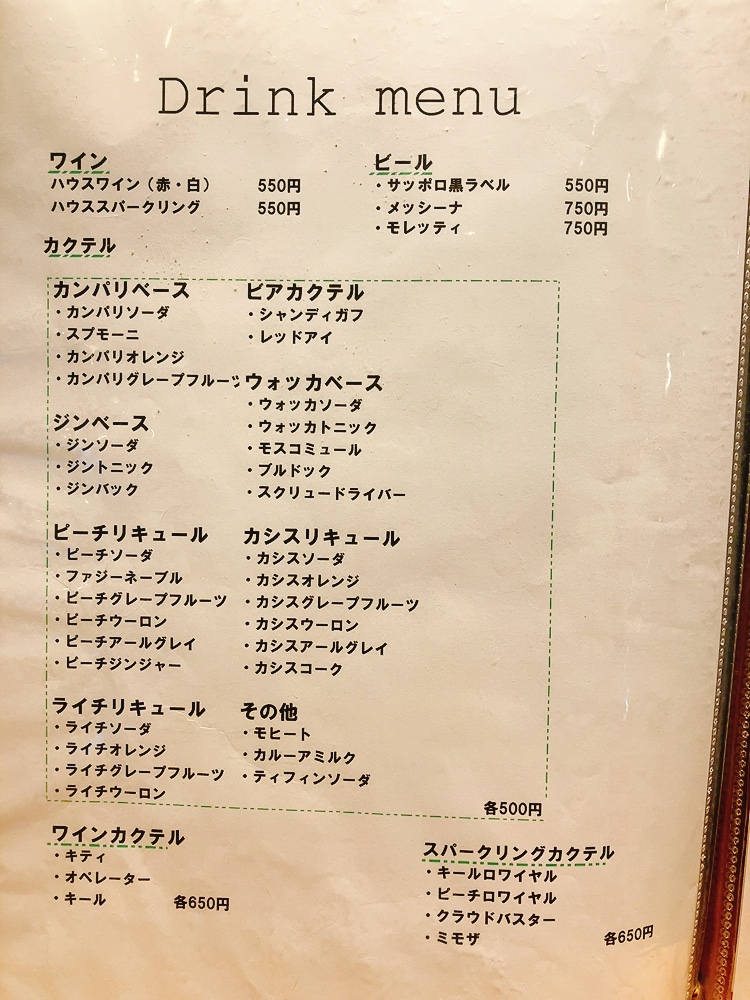 Drink menu
ワイン
ハウスワイン（赤・白） 550円
ハウススパークリング 550円
ビール
・サッポロ黒ラベル 550円
・メッシーナ 750円
・モレッティ 750円
カクテル
カンパリベース
・カンパリソーダ
・スプモーニ
・カンパリオレンジ
・カンパリグレープフルーツ
ビアカクテル
・シャンディガフ
・レッドアイ
ウォッカベース
・ウォッカソーダ
・ウォッカトニック
・モスコミュール
・ブルドック
・スクリュードライバー
ジンベース
・ジンソーダ
・ジントニック
・ジンバック
ピーチリキュール
・ピーチソーダ
・ファジーネーブル
・ピーチグレープフルーツ
・ピーチウーロン
・ピーチアールグレイ
・ピーチジンジャー
カシスリキュール
・カシスソーダ
・カシスオレンジ
・カシスグレープフルーツ
・カシスウーロン
・カシスアールグレイ
・カシスコーク
ライチリキュール
・ライチソーダ
・ライチオレンジ
・ライチグレープフルーツ
・ライチウーロン
その他
・モヒート
・カルーアミルク
・ティフィンソーダ
各500円
ワインカクテル
・キティ
・オペレーター
・キール 各650円
スパークリングカクテル
・キールロワイヤル
・ピーチロワイヤル
・クラウドバスター
・ミモザ 各650円